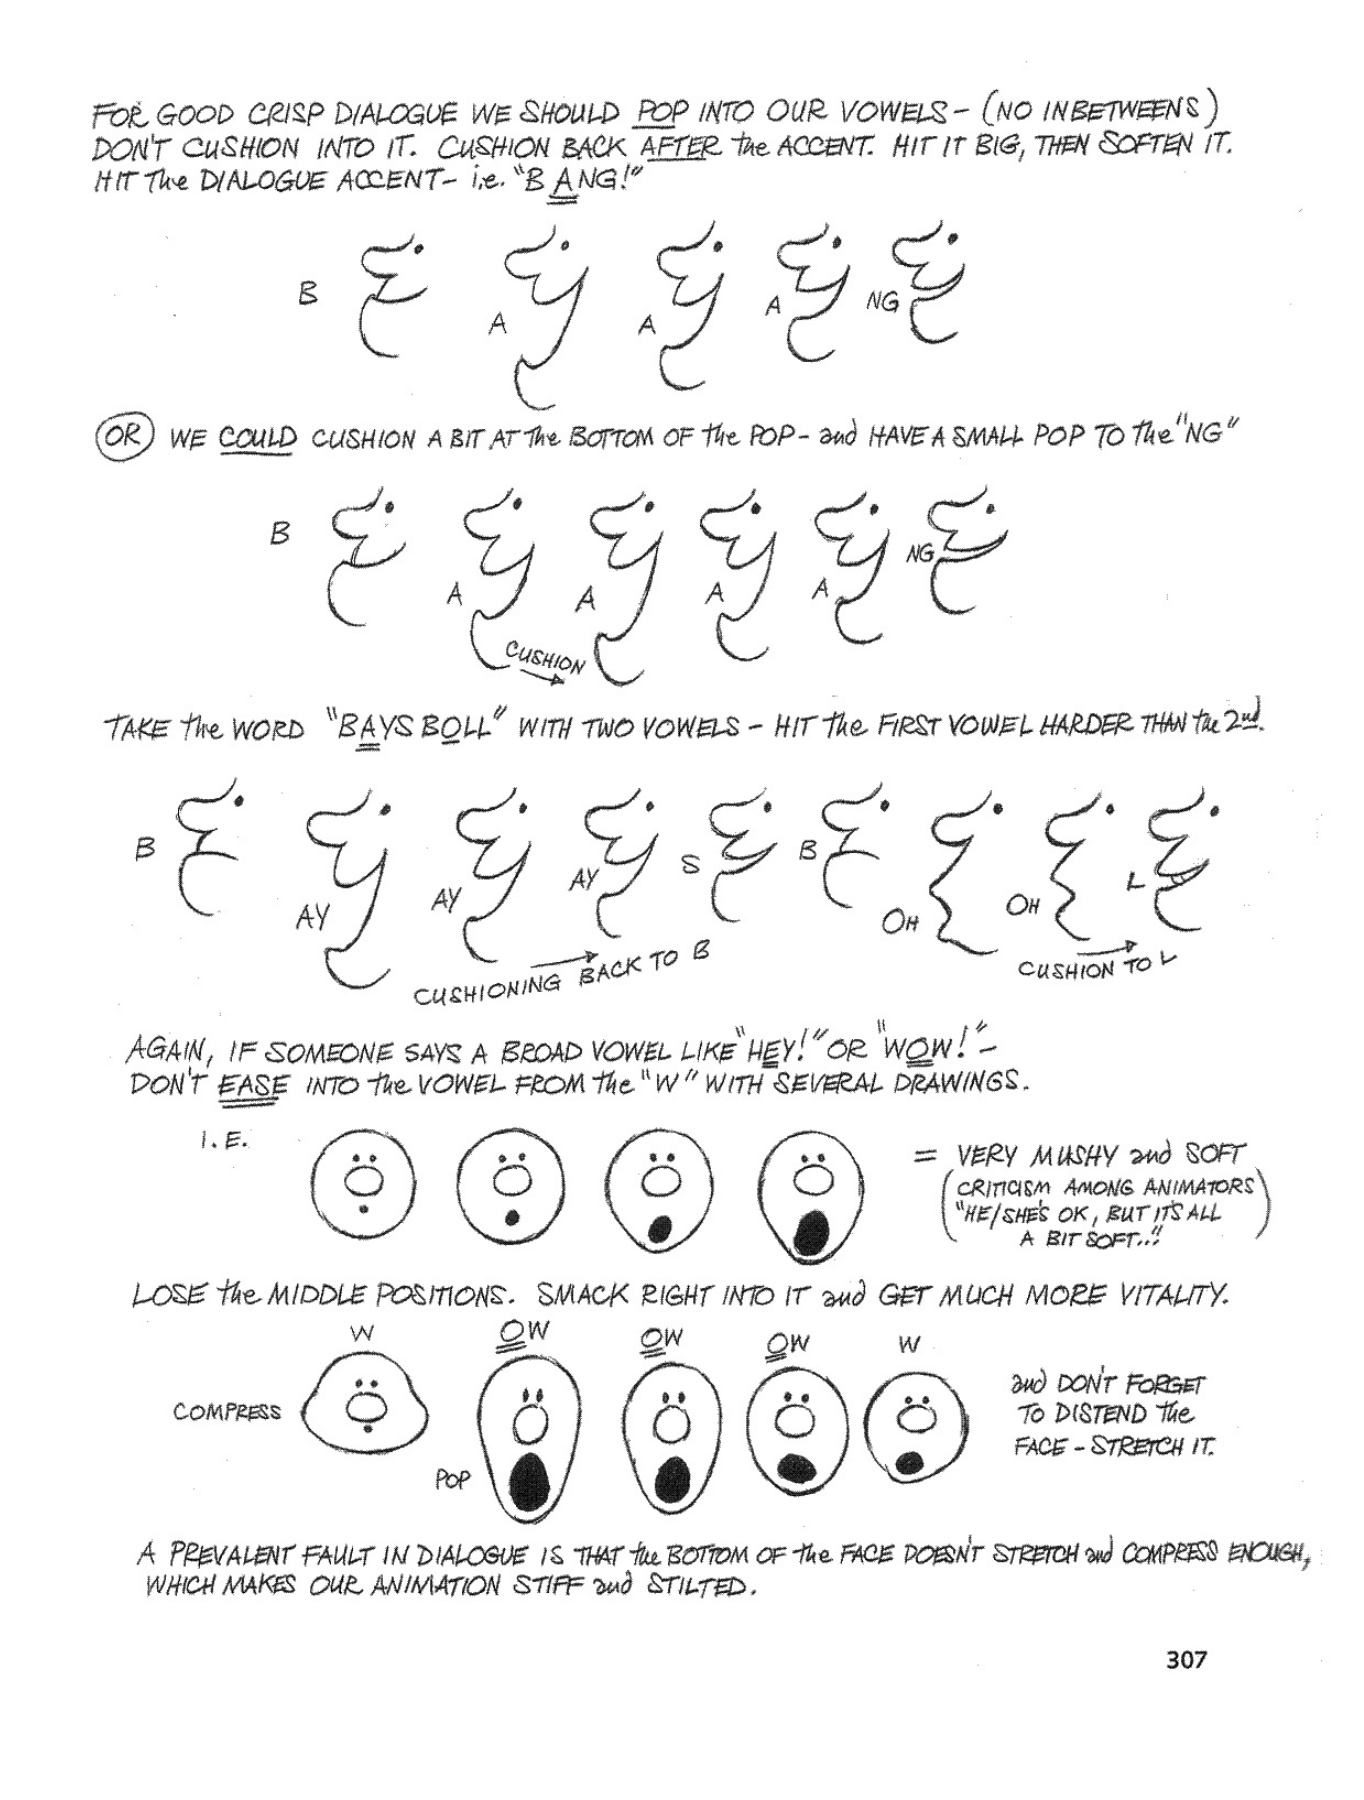 FOR GOOD CRISP DIALOGUE WE SHOULD POP INTO OUR VOWELS – (NO INBETWEENS)
DON'T CUSHION INTO IT. CUSHION BACK AFTER the ACCENT. HIT IT BIG, THEN SOFTEN IT.
HIT The DIALOGUE ACCENT – i.e. "B ANG!"
B A A A NG
OR WE COULD CUSHION A BIT AT The BOTTOM OF the POP – and HAVE A SMALL POP TO The "NG"
B A A A A NG
CUSHION
TAKE the WORD "BAYS BOLL" WITH TWO VOWELS – HIT the FIRST VOWEL HARDER THAN the 2nd.
B AY AY AY S B OH OH L
CUSHIONING BACK TO B
CUSHION TO L
AGAIN, IF SOMEONE SAYS A BROAD VOWEL LIKE "HEY!" OR "WOW!" –
DON'T EASE INTO the VOWEL FROM the "W" WITH SEVERAL DRAWINGS.
I.E.
= VERY MUSHY and SOFT
(CRITICISM AMONG ANIMATORS
"HE/SHE'S OK, BUT IT'S ALL
A BIT SOFT..")
LOSE the MIDDLE POSITIONS. SMACK RIGHT INTO IT and GET MUCH MORE VITALITY.
W OW OW OW W
COMPRESS
POP
and DON'T FORGET
TO DISTEND The
FACE – STRETCH IT.
A PREVALENT FAULT IN DIALOGUE IS THAT the BOTTOM OF the FACE DOESN'T STRETCH and COMPRESS ENOUGH,
WHICH MAKES OUR ANIMATION STIFF and STILTED.
307